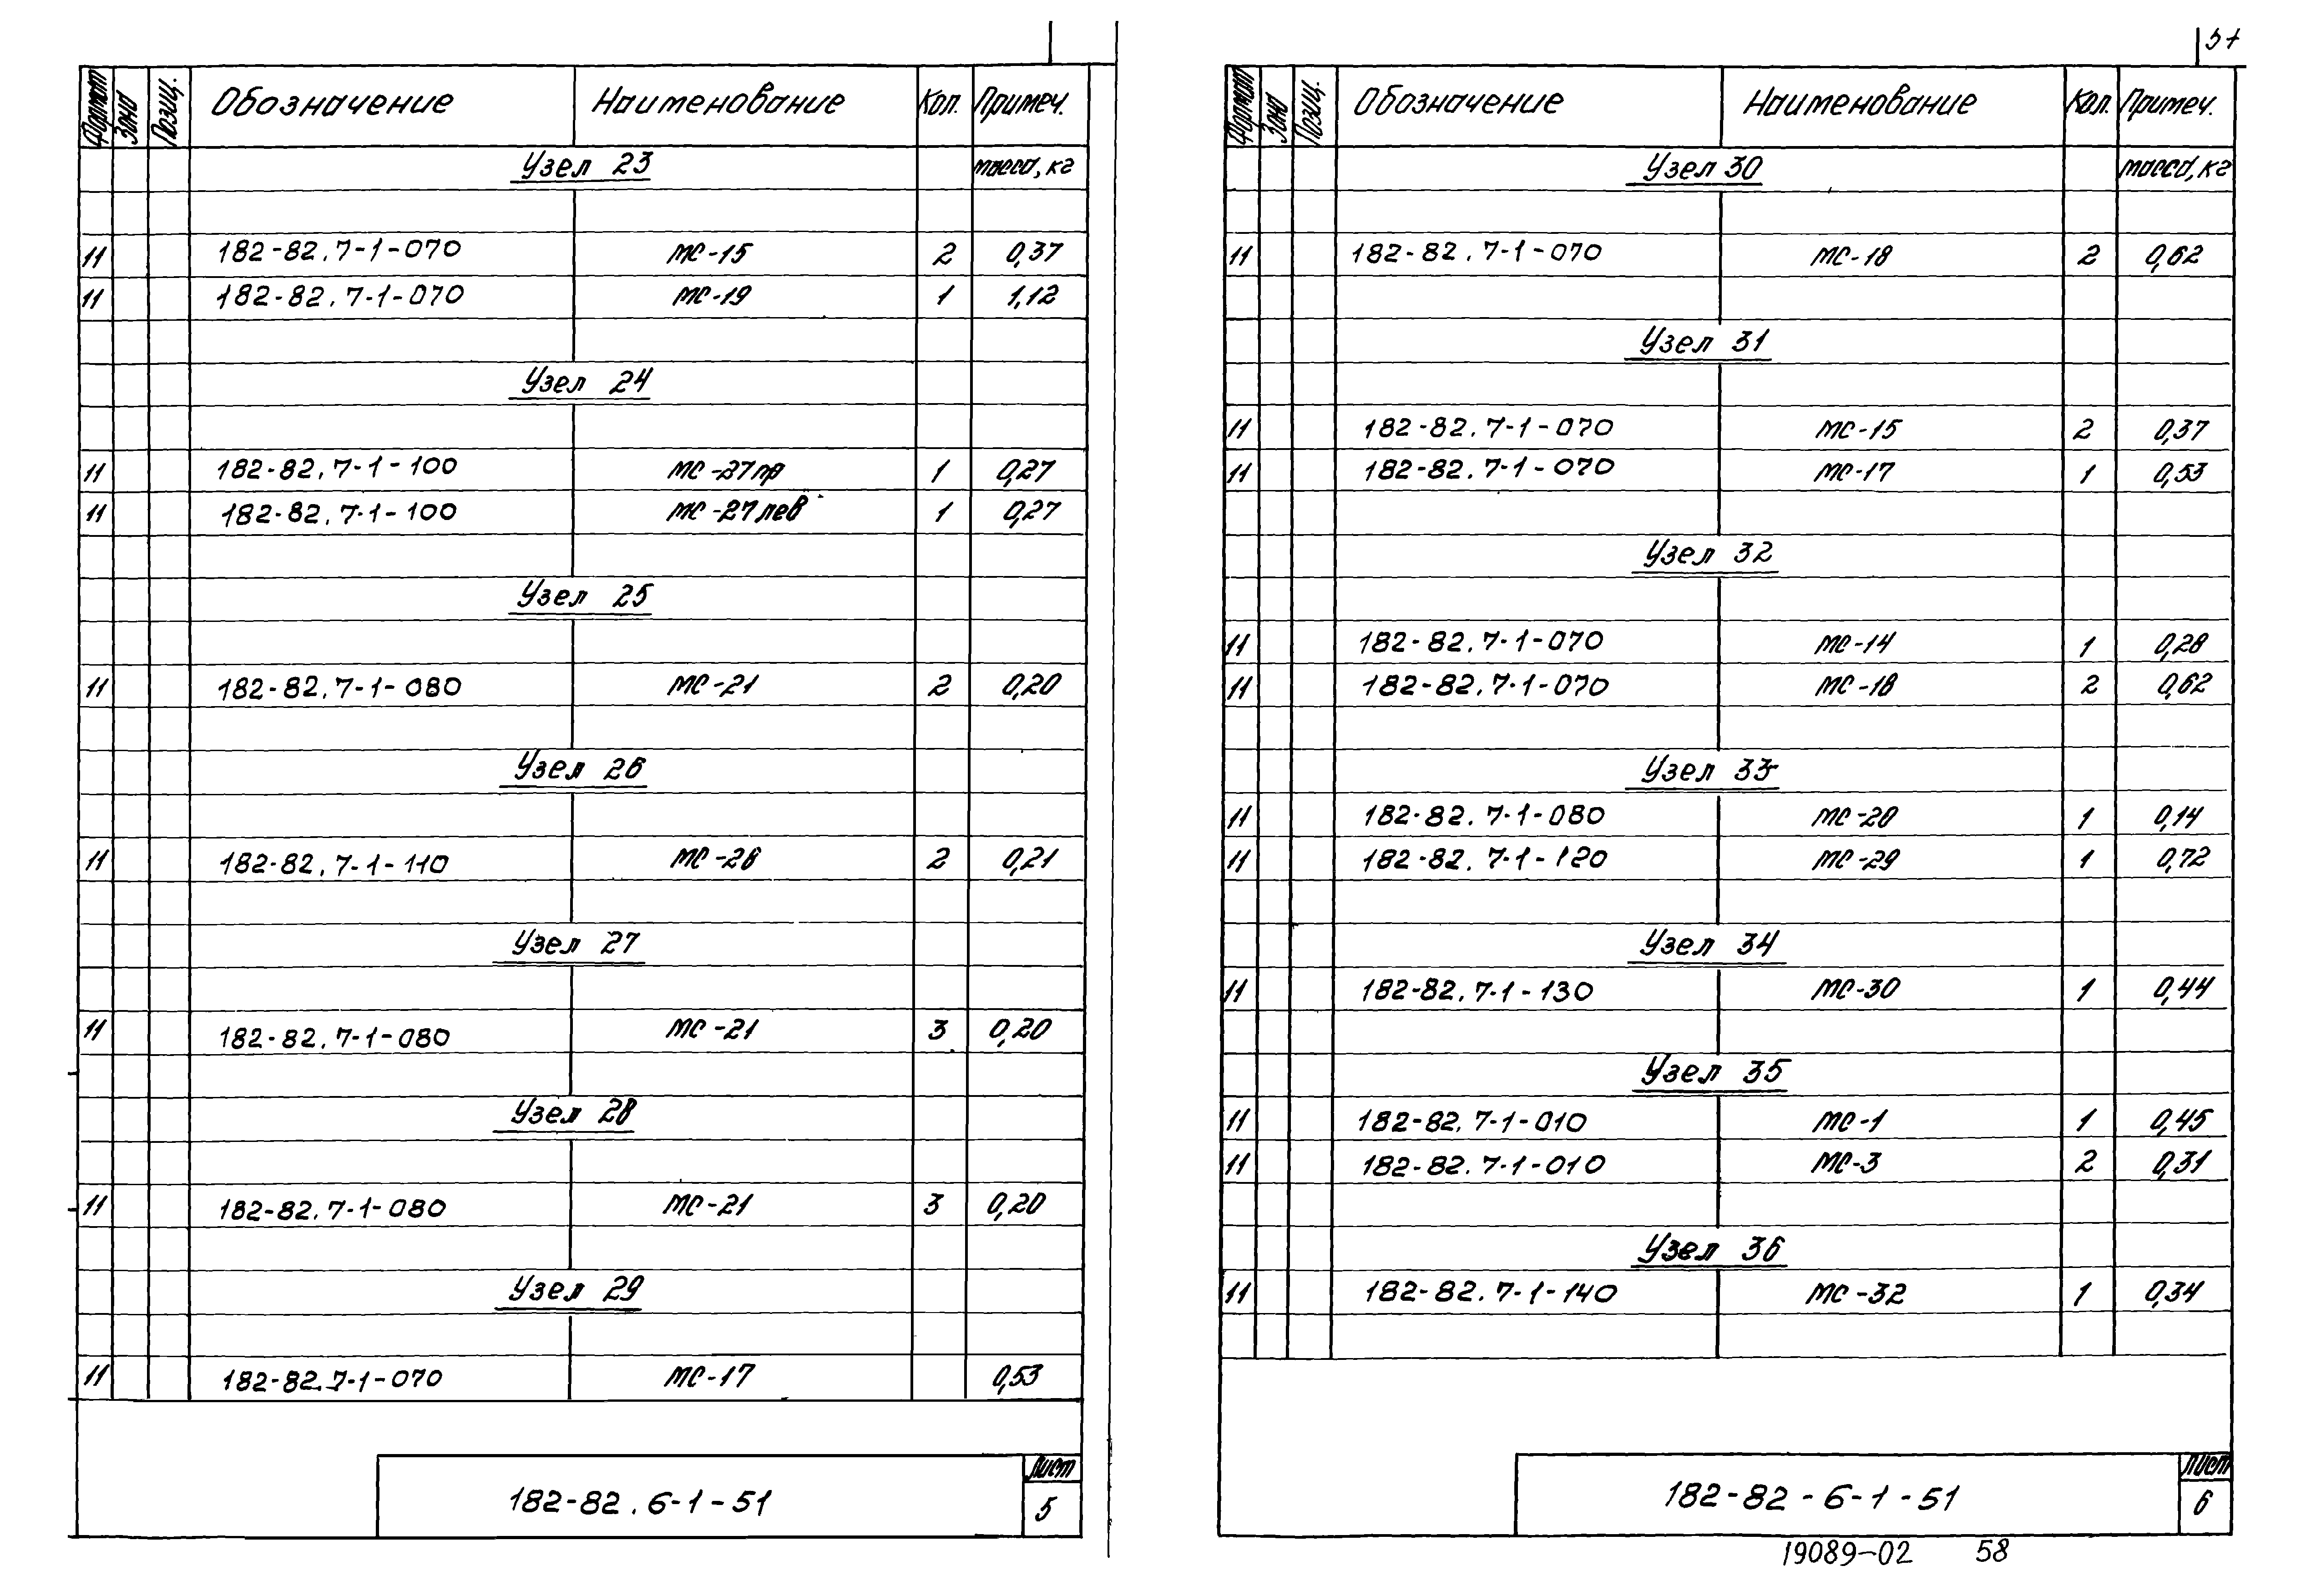 Формат Зона Позиц. Обозначение Наименование Кол. Примеч.
Узел 23 масса, кг
11 182-82.7-1-070 МС-15 2 0,37
11 182-82.7-1-070 МС-19 1 1,12
Узел 24
11 182-82.7-1-100 МС-27пр 1 0,27
11 182-82.7-1-100 МС-27лев 1 0,27
Узел 25
11 182-82.7-1-080 МС-21 2 0,20
Узел 26
11 182-82.7-1-110 МС-26 2 0,21
Узел 27
11 182-82.7-1-080 МС-21 3 0,20
Узел 28
11 182-82.7-1-080 МС-21 3 0,20
Узел 29
11 182-82.7-1-070 МС-17 0,53
182-82.6-1-51 Лист
5
Формат Зона Позиц. Обозначение Наименование Кол. Примеч.
Узел 30 масса, кг
11 182-82.7-1-070 МС-18 2 0,62
Узел 31
11 182-82.7-1-070 МС-15 2 0,37
11 182-82.7-1-070 МС-17 1 0,53
Узел 32
11 182-82.7-1-070 МС-14 1 0,28
11 182-82.7-1-070 МС-18 2 0,62
Узел 33
11 182-82.7-1-080 МС-20 1 0,14
11 182-82.7-1-120 МС-29 1 0,72
Узел 34
11 182-82.7-1-130 МС-30 1 0,44
Узел 35
11 182-82.7-1-010 МС-1 1 0,45
11 182-82.7-1-010 МС-3 2 0,31
Узел 36
11 182-82.7-1-140 МС-32 1 0,34
182-82-6-1-51 Лист
6
19089-02 58